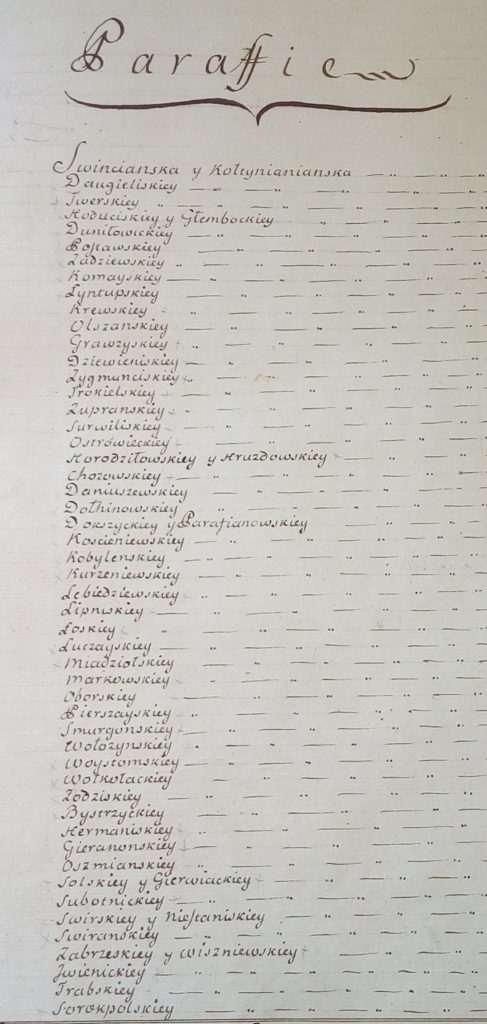 Paraffie
Swincianska y Kołtynianianska
Daugieliskiey
Twerskiey
Hoduciskiey y Głembockiey
Duniłowickiey
Postawskiey
Zadziewskiey
Komayskiey
Łyntupskiey
Krewskiey
Olszanskiey
Grawżyskiey
Dziewieniskiey
Zygmunciskiey
Trokielskiey
Zupranskiey
Surwiliskiey
Ostrowieckiey
Horodziłowskiey y Hruzdowskiey
Chozowskiey
Daniuszewskiey
Dołhinowskiey
Dokszyckiey y Parafianowskiey
Koscieniewskiey
Kobylenskiey
Kurzeniewskiey
Łebiedziewskiey
Lipniskiey
Łoskiey
Łuczayskiey
Miadziolskiey
Markowskiey
Oborskiey
Pierszayskiey
Smurgonskiey
Wołozynskiey
Woystomskiey
Wołkołackiey
Zodziskiey
Bystrzyckiey
Hermaniskiey
Gieranonskiey
Oszmianskiey
Solskiey y Gierwiackiey
Subotnickiey
Swirskiey y Niestaniskiey
Swiranskiey
Zabrzeskiey y Wiszniewskiey
Jwienickiey
Trabskiey
Sorokpolskiey